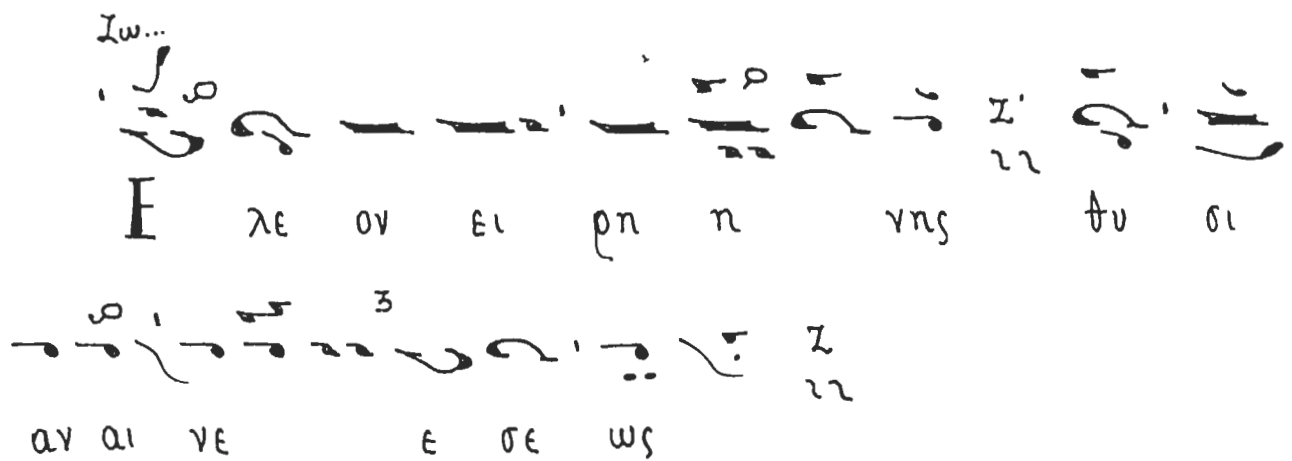 Ζω...
Ε λε ον ει ρη η νης Ζ' θυ σι
αν αι νε ε σε ως Ζ